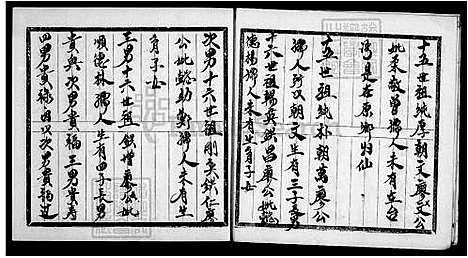 十五世祖純厚朝文廖文公
妣柔敏曾孺人未有生台
湾是在原鄉归仙
十五世祖純朴朝萬廖公
孺人阿汉朝文生有三子長男
十六世祖楊英武昌廖公妣
德楊孺人未有生育子女
次男十六世祖剛英欽仁廖
公妣懿助鄭孺人未有生
育子女
三男十六世祖欽增廖公妣
順德林孺人生有四子長男
貴興次男貴福三男貴寿
四男貴禄因以次男貴福过